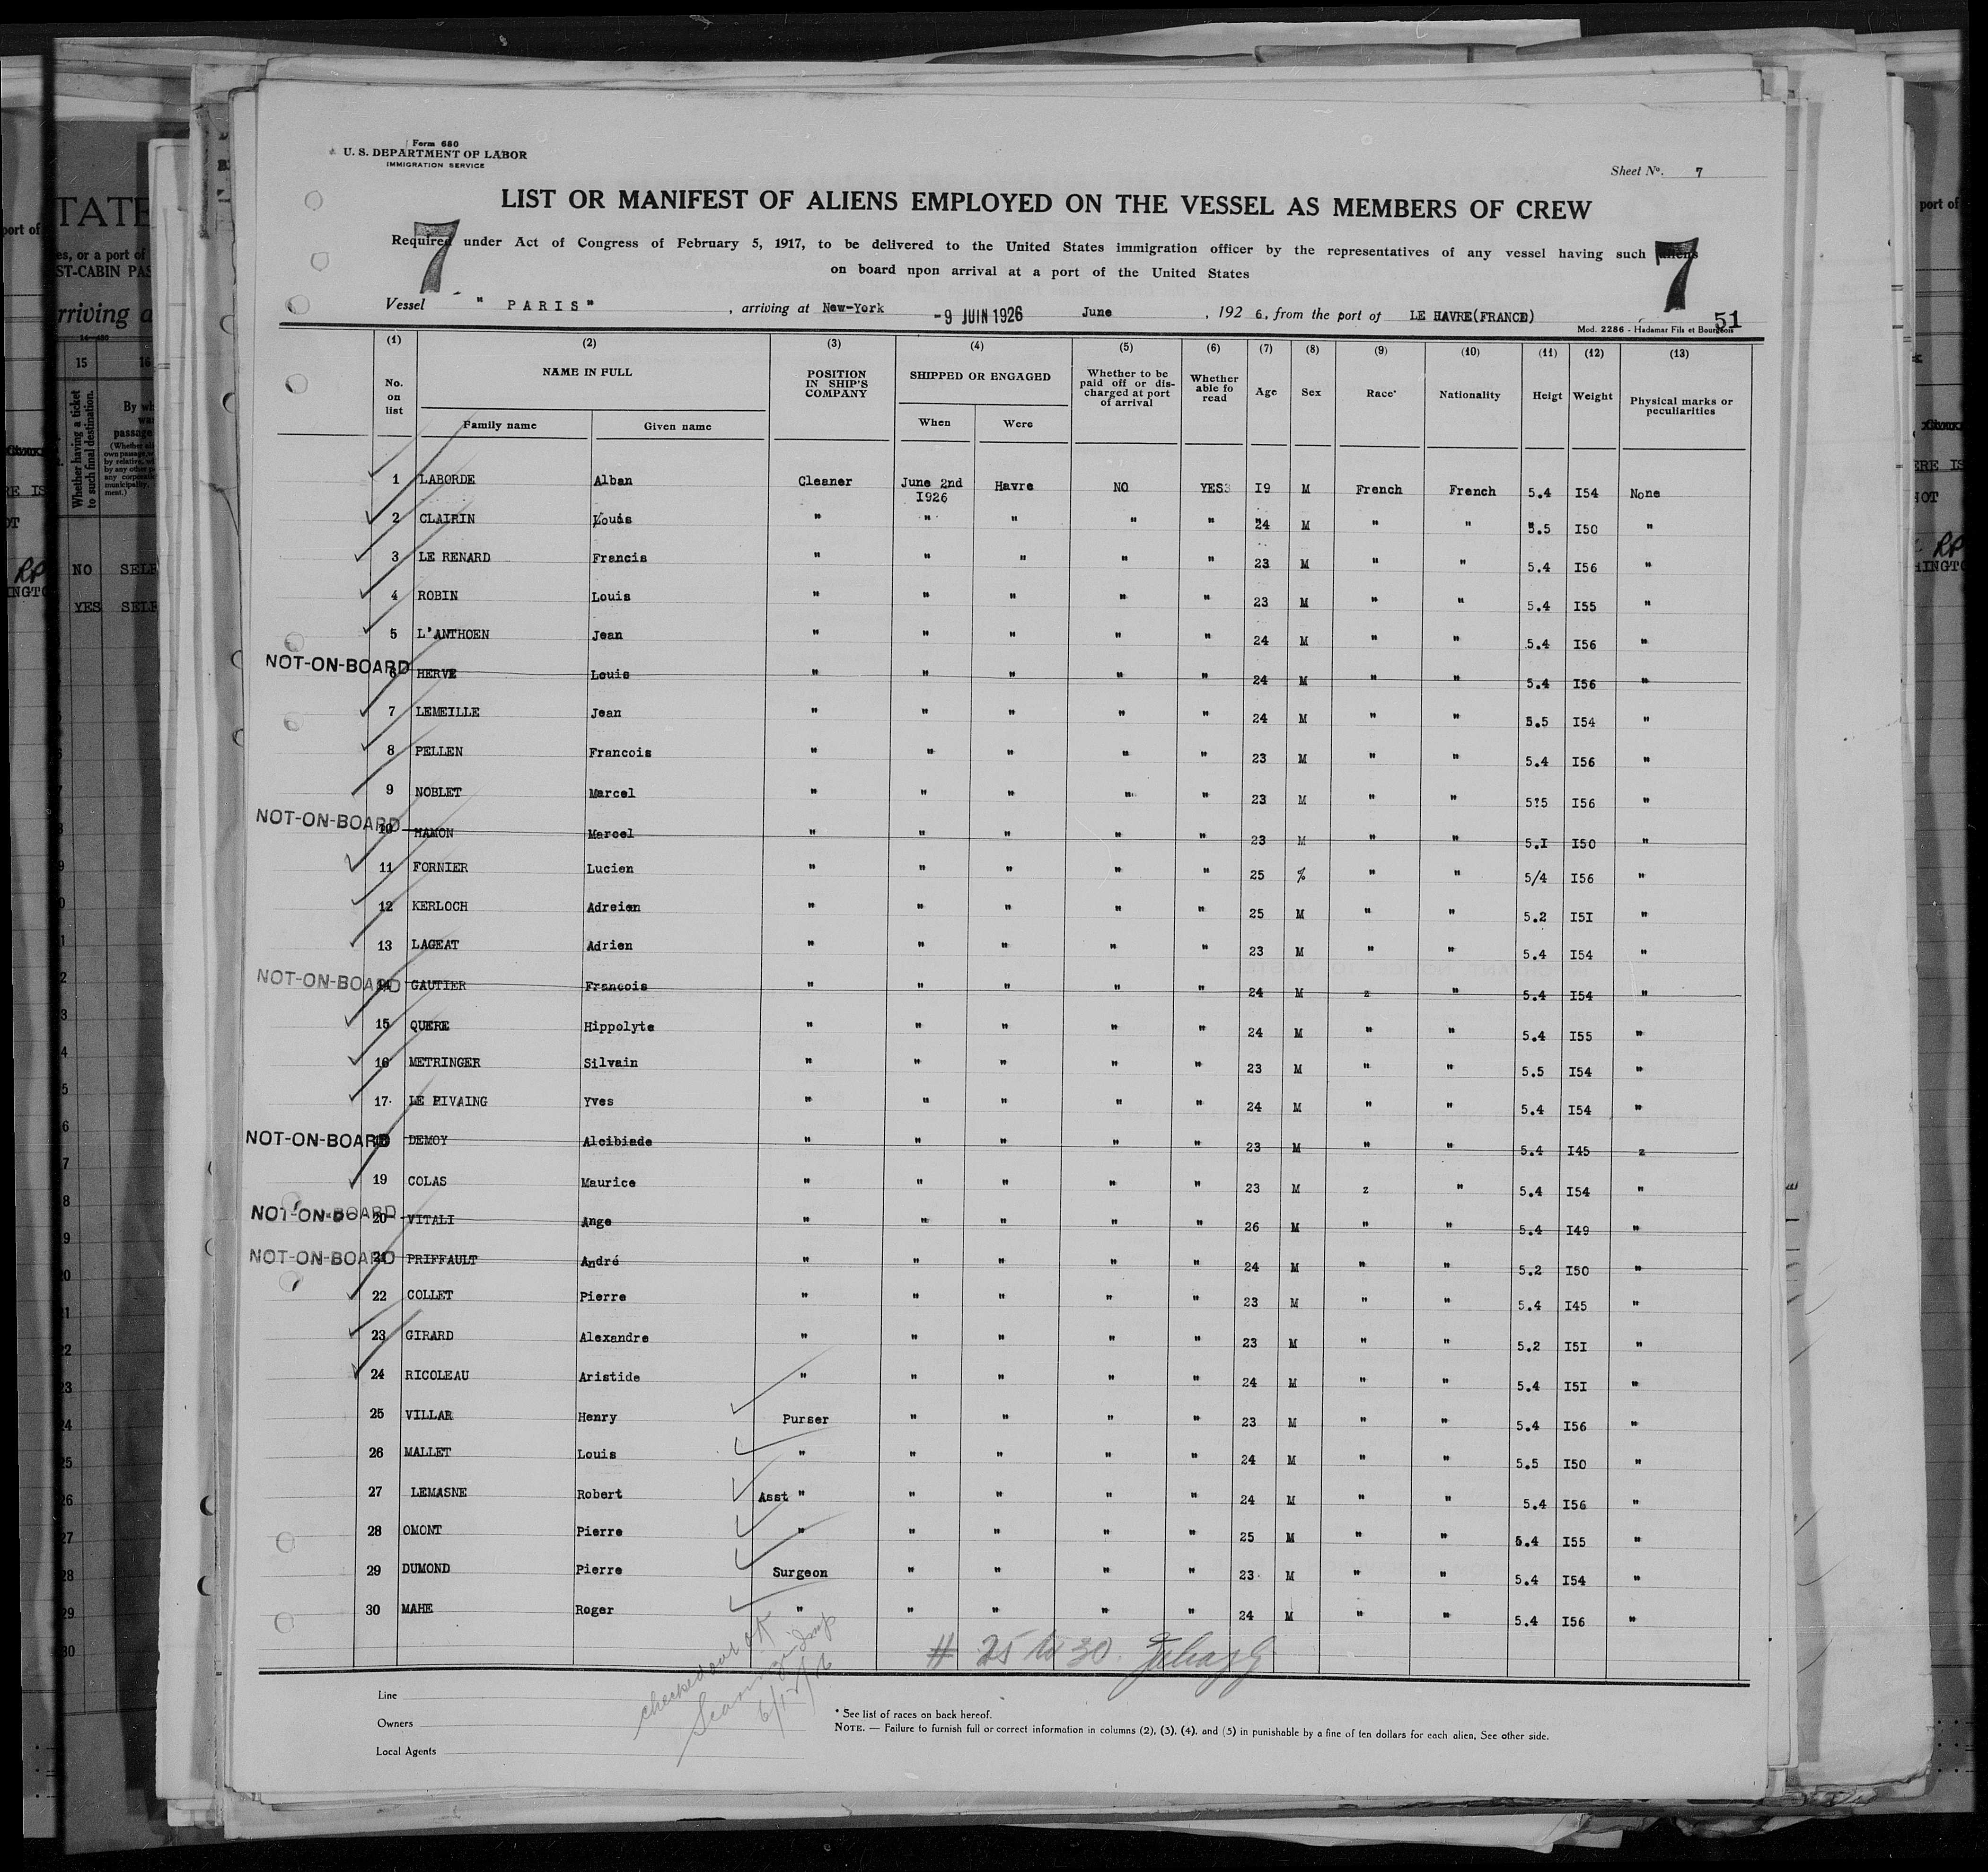 Form 680
U. S. DEPARTMENT OF LABOR
IMMIGRATION SERVICE
Sheet No. 7
LIST OR MANIFEST OF ALIENS EMPLOYED ON THE VESSEL AS MEMBERS OF CREW
7 7
Required under Act of Congress of February 5, 1917, to be delivered to the United States immigration officer by the representatives of any vessel having such aliens
on board npon arrival at a port of the United States
Vessel " PARIS" , arriving at New-York -9 JUIN 1926 June , 192 6, from the port of LE HAVRE(FRANCE)
Mod. 2286 - Hadamar Fils et Bourgeois 51
(1) (2) (3) (4) (5) (6) (7) (8) (9) (10) (11) (12) (13)
No. on list NAME IN FULL Family name Given name POSITION IN SHIP'S COMPANY SHIPPED OR ENGAGED When Were Whether to be paid off or discharged at port of arrival Whether able fo read Age Sex Race* Nationality Heigt Weight Physical marks or peculiarities
1 LABORDE Alban Cleaner June 2nd I926 Havre NO YES I9 M French French 5.4 I54 None
2 CLAIRIN Louis " " " " " 24 M " " 5.5 I50 "
3 LE RENARD Francis " " " " " 23 M " " 5.4 I56 "
4 ROBIN Louis " " " " " 23 M " " 5.4 I55 "
5 L'ANTHOEN Jean " " " " " 24 M " " 5.4 I56 "
NOT-ON-BOARD 6 HERVE Louis " " " " " 24 M " " 5.4 I56 "
7 LEMEILLE Jean " " " " " 24 M " " 5.5 I54 "
8 PELLEN Francois " " " " " 23 M " " 5.4 I56 "
9 NOBLET Marcel " " " " " 23 M " " 5?5 I56 "
NOT-ON-BOARD 10 HAMON Marcel " " " " " 23 M " " 5.I I50 "
11 FORNIER Lucien " " " " " 25 % " " 5/4 I56 "
12 KERLOCH Adreien " " " " " 25 M " " 5.2 I5I "
13 LAGEAT Adrien " " " " " 23 M " " 5.4 I54 "
NOT-ON-BOARD 14 GAUTIER Francois " " " " " 24 M z " 5.4 I54 "
15 QUERE Hippolyte " " " " " 24 M " " 5.4 I55 "
16 METRINGER Silvain " " " " " 23 M " " 5.5 I54 "
17 LE PIVAING Yves " " " " " 24 M " " 5.4 I54 "
NOT-ON-BOARD 18 DEMOY Alcibiade " " " " " 23 M " " 5.4 I45 z
19 COLAS Maurice " " " " " 23 M z " 5.4 I54 "
NOT-ON-BOARD 20 VITALI Ange " " " " " 26 M " " 5.4 I49 "
NOT-ON-BOARD 21 PRIFFAULT André " " " " " 24 M " " 5.2 I50 "
22 COLLET Pierre " " " " " 23 M " " 5.4 I45 "
23 GIRARD Alexandre " " " " " 23 M " " 5.2 I5I "
24 RICOLEAU Aristide " " " " " 24 M " " 5.4 I5I "
25 VILLAR Henry Purser " " " " 23 M " " 5.4 I56 "
26 MALLET Louis " " " " " 24 M " " 5.5 I50 "
27 LEMASNE Robert Asst " " " " " 24 M " " 5.4 I56 "
28 OMONT Pierre " " " " " 25 M " " 5.4 I55 "
29 DUMOND Pierre Surgeon " " " " 23 M " " 5.4 I54 "
30 MAHE Roger " " " " " 24 M " " 5.4 I56 "
# 25 to 30
checked out OK
Line
Owners
Local Agents
* See list of races on back hereof.
NOTE. — Failure to furnish full or correct information in columns (2), (3), (4), and (5) in punishable by a fine of ten dollars for each alien, See other side.